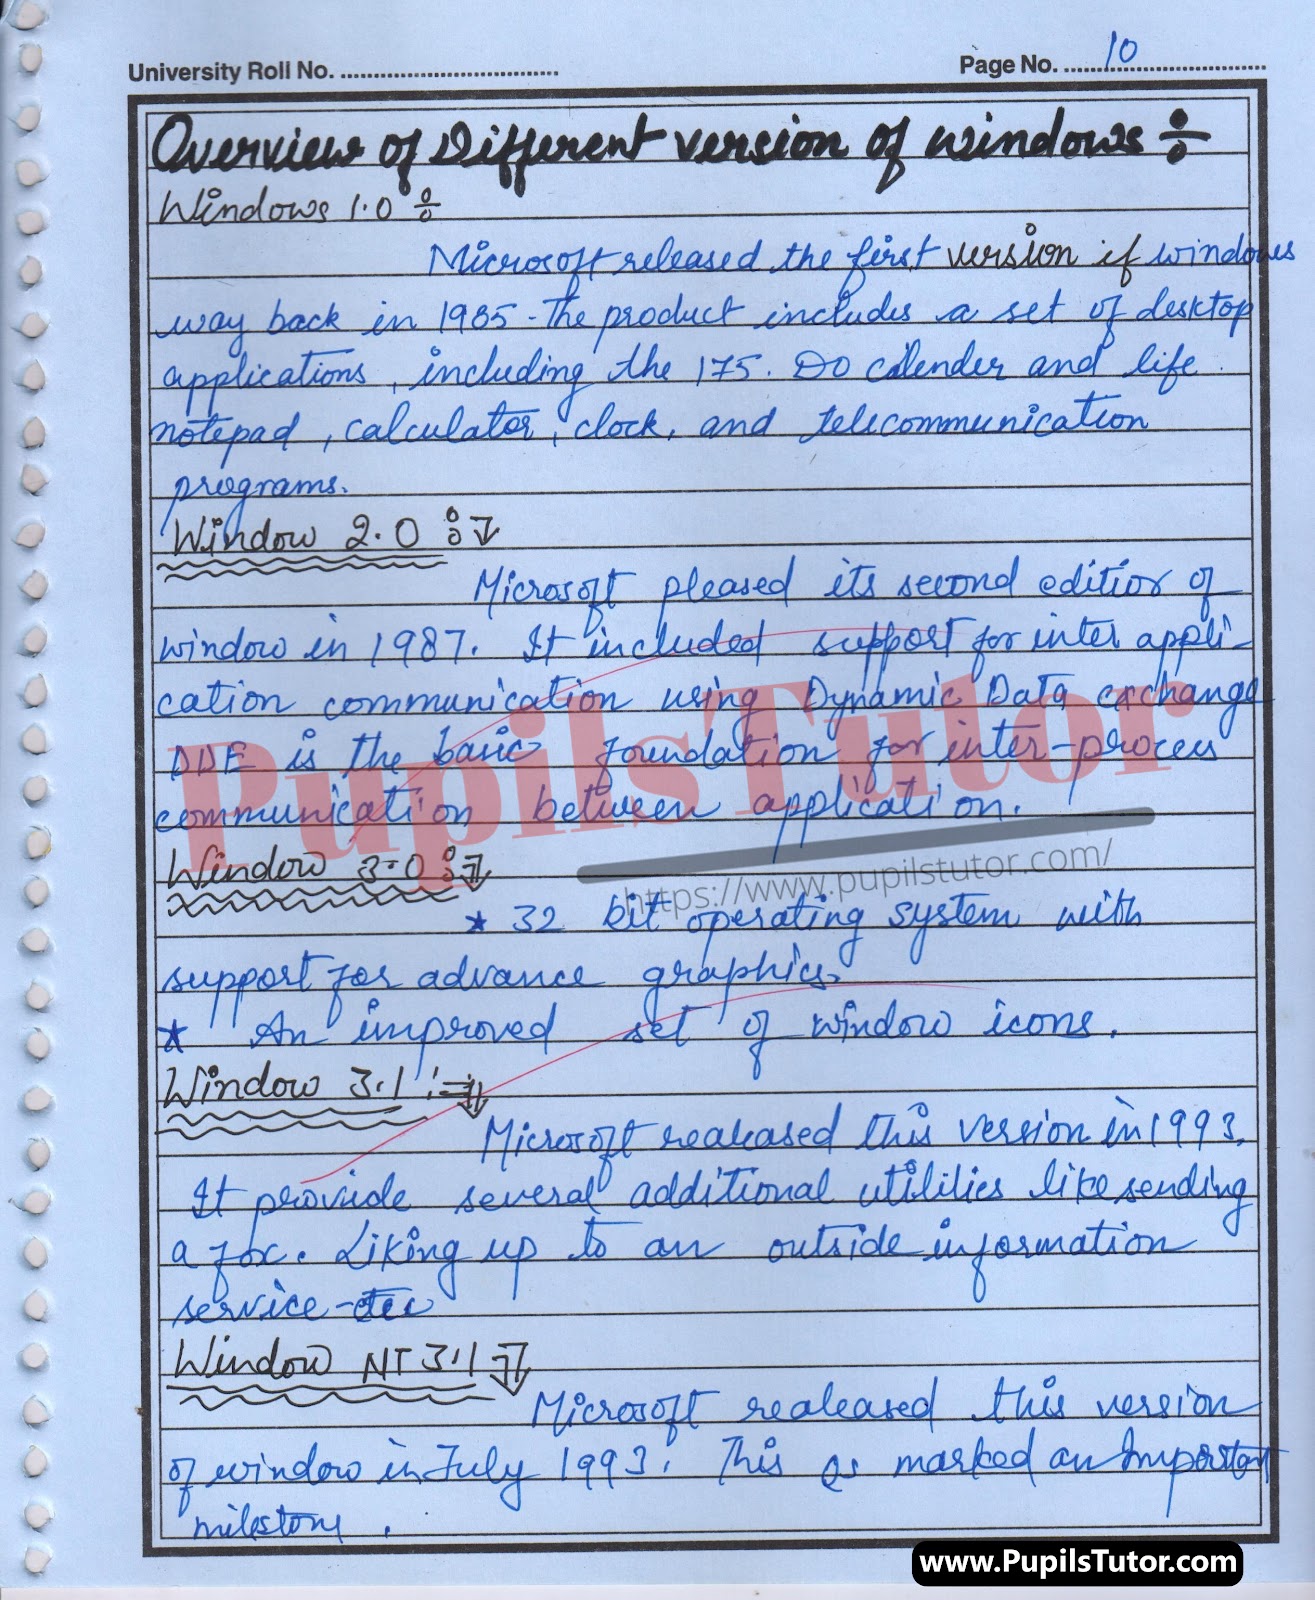 University Roll No. ................................. Page No. ......10......................
Overview of Different version of windows ÷
Windows 1.0 ÷
Microsoft released the first version if windows
way back in 1985 - The product includes a set of desktop
applications, including the 175. Do calender and life
notepad, calculator, clock, and telecommunication
programs.
Window 2.0
Microsoft pleased its second edition of
window in 1987. It included support for inter appli-
cation communication using Dynamic Data exchange
DDE is the basic foundation for inter-process
communication between application.
Window 3.0
PupilsTutor
https://www.pupilstutor.com/
* 32 bit operating system with
support for advance graphics.
* An improved set of window icons.
Window 3.1
Microsoft realeased this version in 1993.
It provide several additional utilities like sending
a fox. Liking up to an outside information
service - etc
Window NT 3.1
Microsoft realeased this version
of window in July 1993. This is marked an Important
milestone.
www.PupilsTutor.com